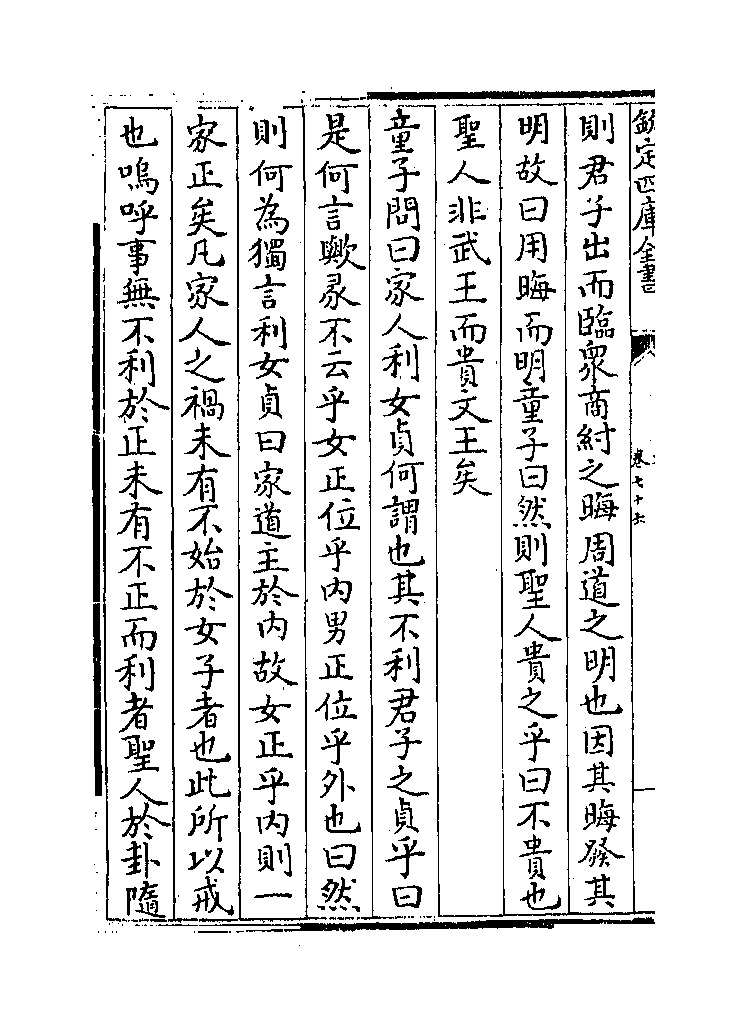 欽定四庫全書
卷七十六
則君子出而臨衆商紂之晦周道之明也因其晦發其
明故曰用晦而明童子曰然則聖人貴之乎曰不貴也
聖人非武王而貴文王矣
童子問曰家人利女貞何謂也其不利君子之貞乎曰
是何言歟彖不云乎女正位乎內男正位乎外也曰然
則何為獨言利女貞曰家道主於內故女正乎內則一
家正矣凡家人之禍未有不始於女子者也此所以戒
也嗚呼事無不利於正未有不正而利者聖人於卦隨